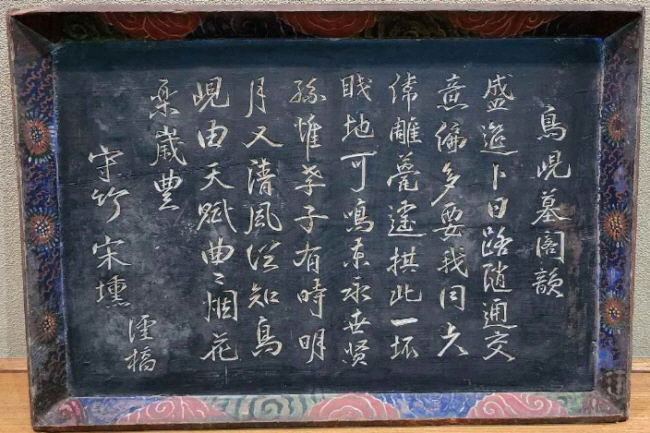 鳥峴墓閣韻
盛筵卜日路隨通交
意偏多要我同
雕甍遠拱此一抔
地可鳴東永世賢
孫惟孝子有時明
月又清風從知鳥
峴由天賦曲〻烟花
樂歲豊
守竹 宋壎 謹稿